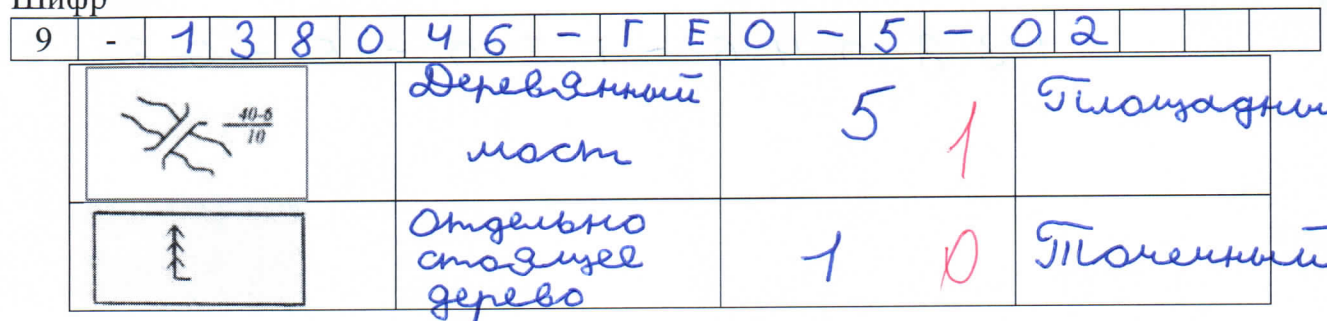 Шифр
9 - 1 3 8 0 4 6 - Г Е О - 5 - 0 2
40-6
10
Деревянный
мост
5 1
Площадны
Отдельно
стоящее
дерево
1 0
Точечный